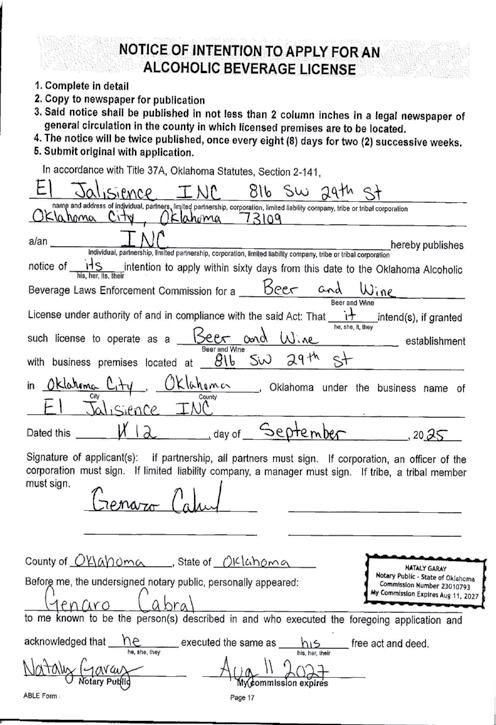 NOTICE OF INTENTION TO APPLY FOR AN
ALCOHOLIC BEVERAGE LICENSE
1. Complete in detail
2. Copy to newspaper for publication
3. Said notice shall be published in not less than 2 column inches in a legal newspaper of
general circulation in the county in which licensed premises are to be located.
4. The notice will be twice published, once every eight (8) days for two (2) successive weeks.
5. Submit original with application.
In accordance with Title 37A, Oklahoma Statutes, Section 2-141,
El Jalisience INC 816 SW 29th St
name and address of individual, partners, limited partnership, corporation, limited liability company, tribe or tribal corporation
Oklahoma City, Oklahoma 73109
a/an INC hereby publishes
Individual, partnership, limited partnership, corporation, limited liability company, tribe or tribal corporation
notice of its intention to apply within sixty days from this date to the Oklahoma Alcoholic
his, her, its, their
Beverage Laws Enforcement Commission for a Beer and Wine
Beer and Wine
License under authority of and in compliance with the said Act: That it intend(s), if granted
he, she, it, they
such license to operate as a Beer and Wine establishment
Beer and Wine
with business premises located at 816 SW 29th St
in Oklahoma City, Oklahoma, Oklahoma under the business name of
City County
El Jalisience INC
Dated this 12, day of September, 2025
Signature of applicant(s): if partnership, all partners must sign. If corporation, an officer of the
corporation must sign. If limited liability company, a manager must sign. If tribe, a tribal member
must sign.
Genaro Cabral
County of Oklahoma, State of Oklahoma
NATALY GARAY
Notary Public - State of Oklahoma
Commission Number 23010793
My Commission Expires Aug 11, 2027
Before me, the undersigned notary public, personally appeared:
Genaro Cabral
to me known to be the person(s) described in and who executed the foregoing application and
acknowledged that he executed the same as his free act and deed.
he, she, they his, her, their
Nataly Garay Aug 11 2027
Notary Public My commission expires
ABLE Form Page 17